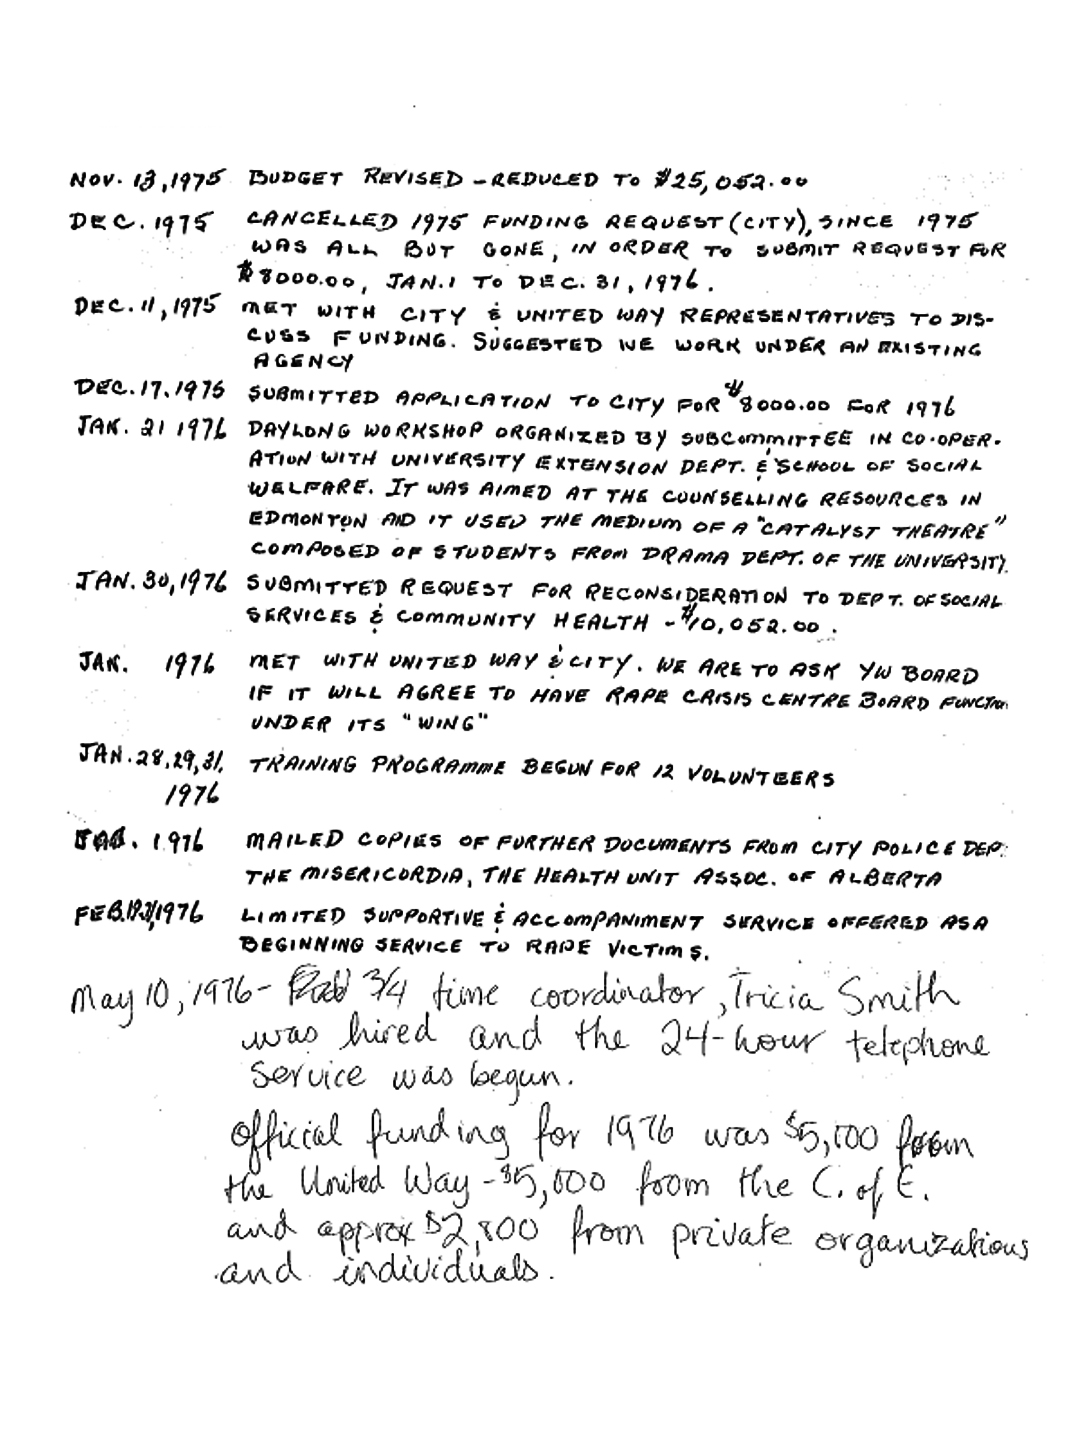 NOV. 13, 1975 BUDGET REVISED - REDUCED TO $25,052.00
DEC. 1975 CANCELLED 1975 FUNDING REQUEST (CITY), SINCE 1975
WAS ALL BUT GONE, IN ORDER TO SUBMIT REQUEST FOR
$8000.00, JAN. 1 TO DEC. 31, 1976.
DEC. 11, 1975 MET WITH CITY & UNITED WAY REPRESENTATIVES TO DIS-
CUSS FUNDING. SUGGESTED WE WORK UNDER AN EXISTING
AGENCY
DEC. 17, 1975 SUBMITTED APPLICATION TO CITY FOR $8000.00 FOR 1976
JAN. 21 1976 DAYLONG WORKSHOP ORGANIZED BY SUBCOMMITTEE IN CO-OPER-
ATION WITH UNIVERSITY EXTENSION DEPT. & SCHOOL OF SOCIAL
WELFARE. IT WAS AIMED AT THE COUNSELLING RESOURCES IN
EDMONTON AID IT USED THE MEDIUM OF A "CATALYST THEATRE"
COMPOSED OF STUDENTS FROM DRAMA DEPT. OF THE UNIVERSITY.
JAN. 30, 1976 SUBMITTED REQUEST FOR RECONSIDERATION TO DEPT. OF SOCIAL
SERVICES & COMMUNITY HEALTH - $10,052.00.
JAN. 1976 MET WITH UNITED WAY & CITY. WE ARE TO ASK YW BOARD
IF IT WILL AGREE TO HAVE RAPE CRISIS CENTRE BOARD FUNCTION
UNDER ITS "WING"
JAN. 28, 29, 31, TRAINING PROGRAMME BEGUN FOR 12 VOLUNTEERS
1976
1976 MAILED COPIES OF FURTHER DOCUMENTS FROM CITY POLICE DEP.
THE MISERICORDIA, THE HEALTH UNIT ASSOC. OF ALBERTA
FEB. 1976 LIMITED SUPPORTIVE & ACCOMPANIMENT SERVICE OFFERED AS A
BEGINNING SERVICE TO RAPE VICTIMS.
May 10, 1976 - 3/4 time coordinator, Tricia Smith
was hired and the 24-hour telephone
service was begun.
Official funding for 1976 was $5,100 from
the United Way - $5,000 from the C. of E.
and approx $2,800 from private organizations
and individuals.